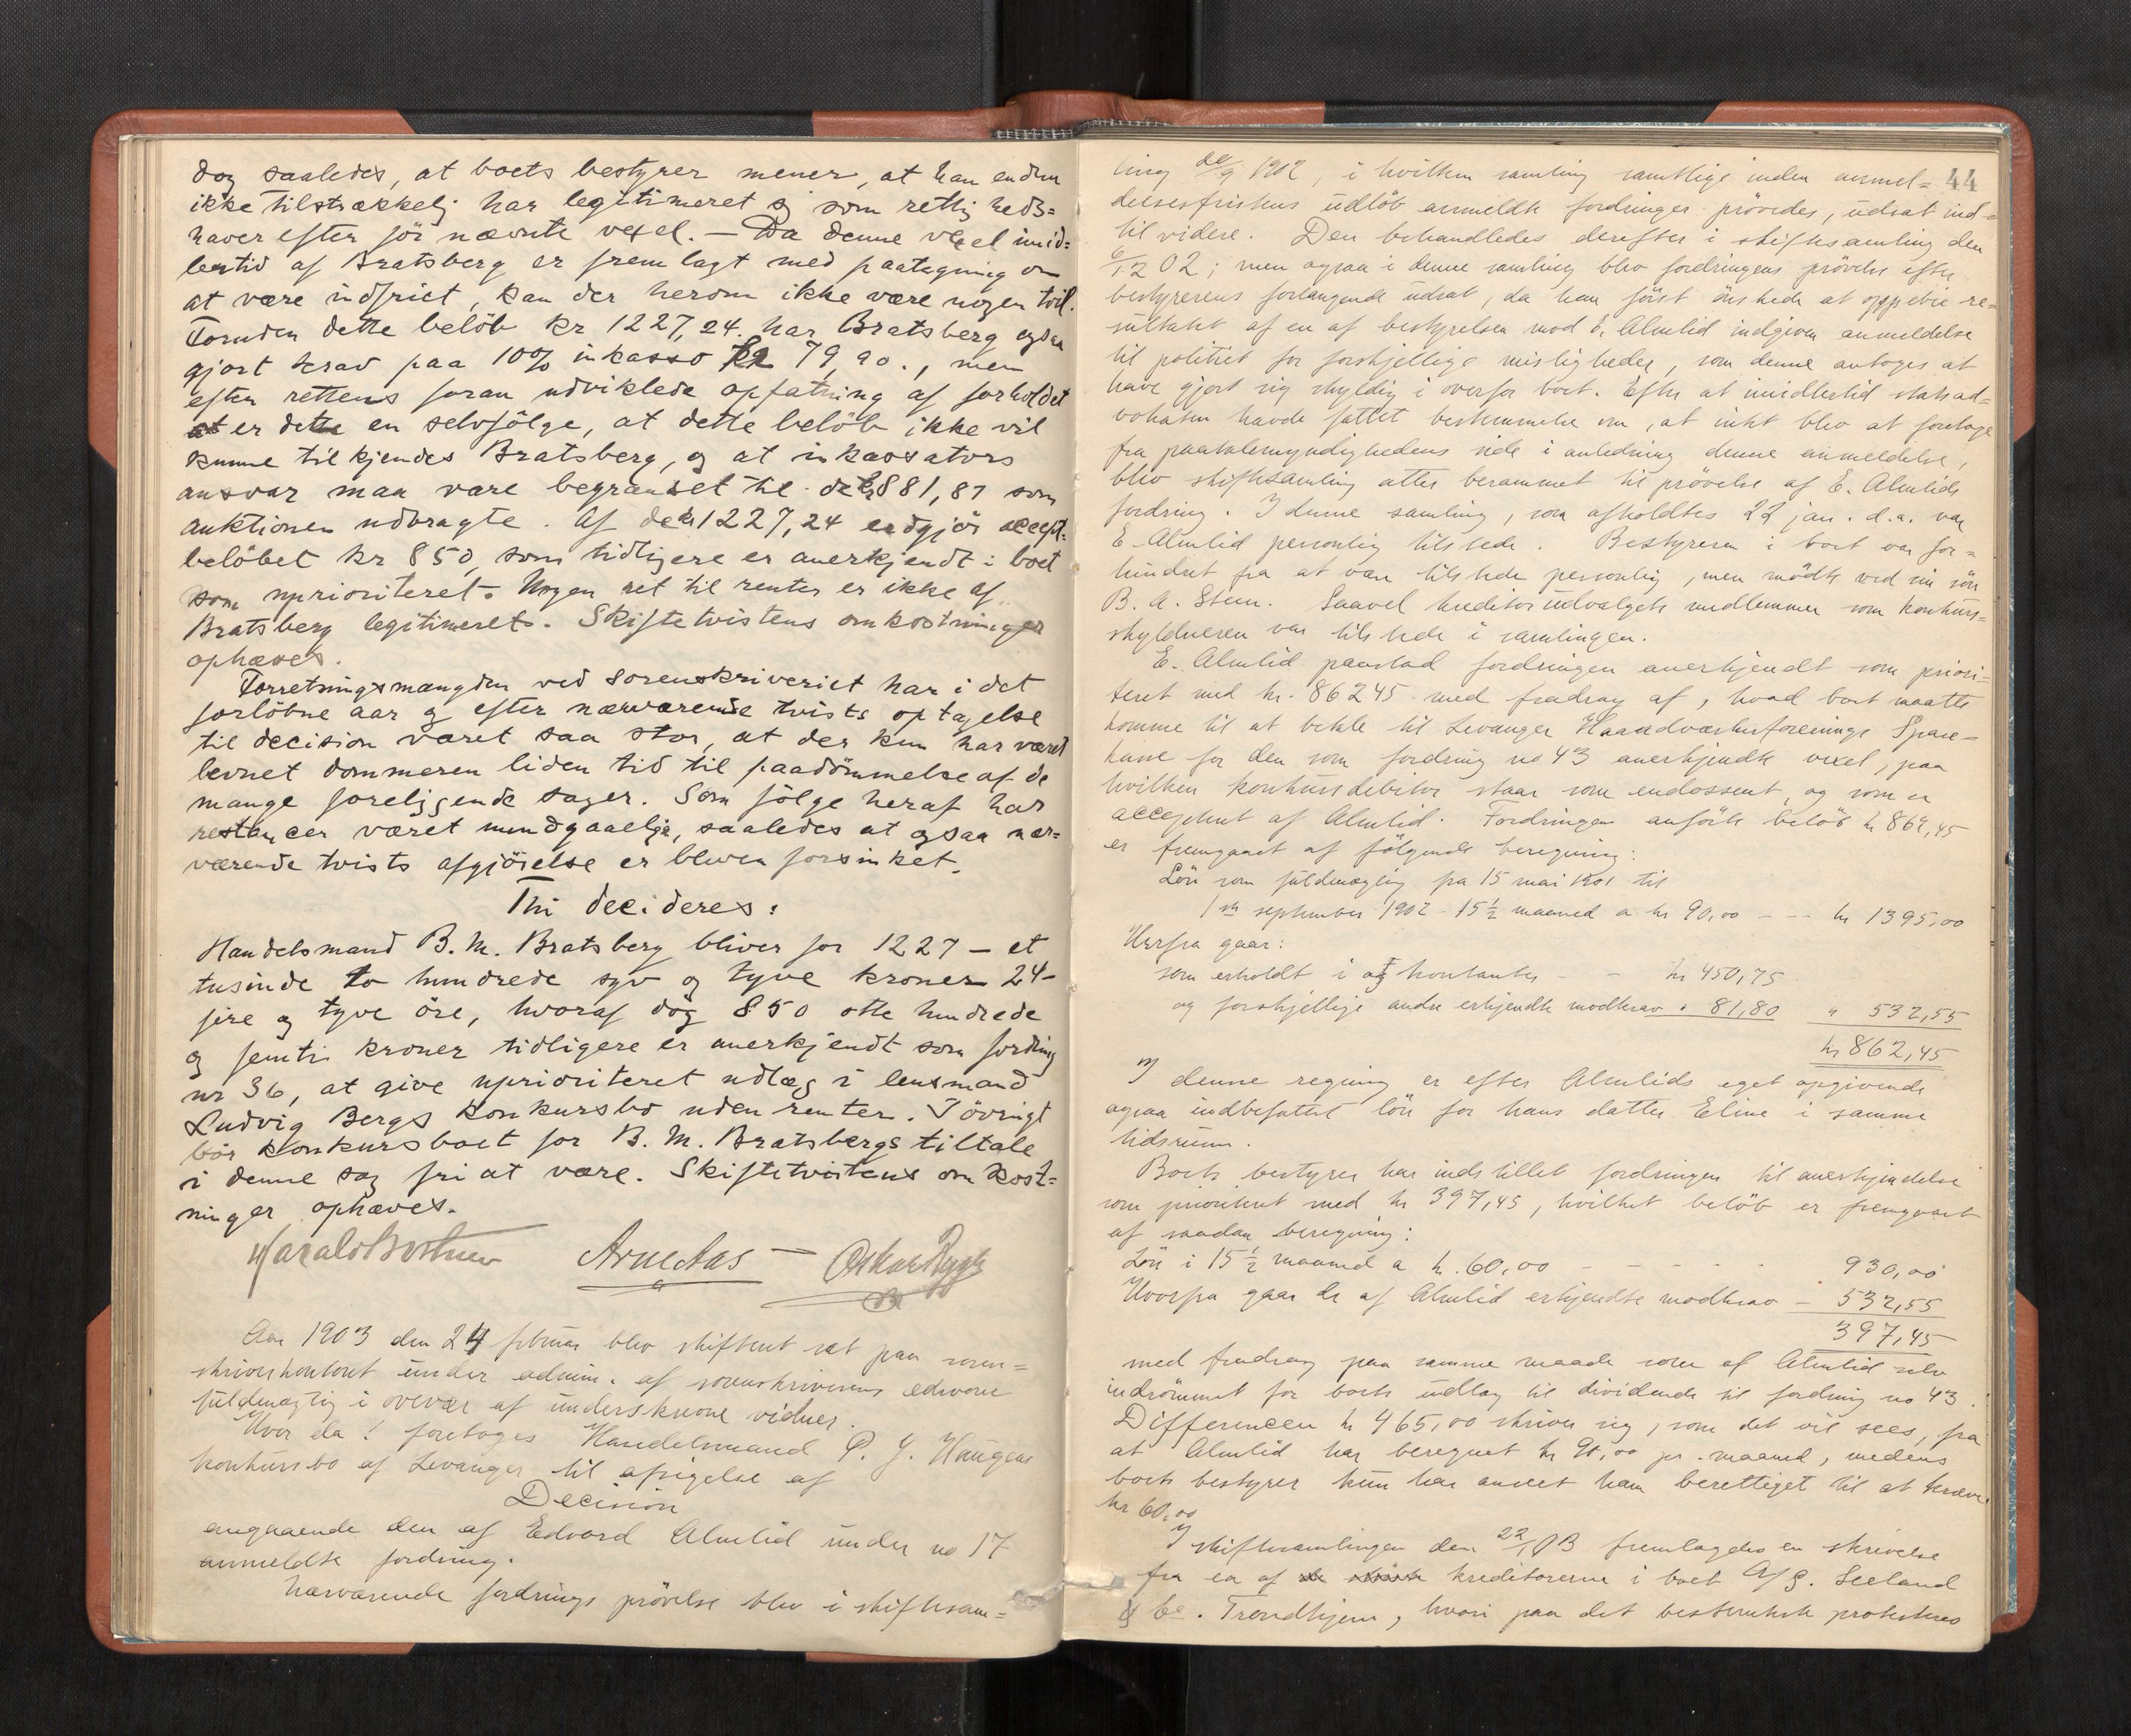 dog saaledes, at boets bestyrer mener, at han endnu
ikke tilstrækkelig har legitimeret sig som rettig heds=
haver efter før nævnte vexel. — Da denne vexel imid=
lertid af Bratsberg er fremlagt med paategning om
at være indfriet, kan der herom ikke være nogen tvil.
Foruden dette beløb kr 1227,24. har Bratsberg ogsaa
gjort krav paa 10% inkasso kr 79,90., men
efter rettens foran udviklede opfatning af forholdet
er dette en selvfølge, at dette beløb ikke vil
kunne tilkjendes Bratsberg, og at inkassators
ansvar maa være begrænset til de kr 881,87 som
auktionen udbragte. Af de kr 1227,24 udgjør accept=
beløbet kr 850, som tidligere er anerkjendt i boet
som uprioriteret. Nogen ret til renter er ikke af
Bratsberg legitimeret. Skiftetvistens omkostninger
ophæves.
Forretningsmængden ved sorenskriveriet har i det
forløbne aar og efter nærværende tvists optagelse
til decision været saa stor, at der kun har været
levnet dommeren liden tid til paadømmelse af de
mange foreliggende sager. Som følge heraf har
restancer været uundgaaelige, saaledes at ogsaa nær=
værende tvists afgjørelse er bleven forsinket.
Thi decideres:
Handelsmand B. M. Bratsberg bliver for 1227 — et
tusinde to hundrede syv og tyve kroner 24-
fire og tyve øre, hvoraf dog 850 otte hundrede
og femti kroner tidligere er anerkjendt som fordring
nr 36, at give uprioriteret udlæg i lensmand
Ludvig Bergs konkursbo uden renter. I øvrigt
bør konkursboet for B. M. Bratsbergs tiltale
i denne sag fri at være. Skiftetvistens omkost=
ninger ophæves.
Harald Bothner Arne Aas Oskar Rygh
Aar 1903 den 24 februar blev skifteret sat paa soren=
skriverkontoret under admin. af sorenskriverens edsvorne
fuldmægtig i overvær af underskrevne vidner.
Hvor da: foretoges Handelsmand P. J. Haugens
konkursbo af Levanger til afsigelse af
Decision
angaaende den af Edvard Almlid under no 17
anmeldte fordring.
Nærværende fordrings prøvelse blev i skiftesam=
44
ling 20/9 1902, i hvilken samling samtlige inden anmel=
delsesfristens udløb anmeldte fordringer prøvedes, udsat ind=
til videre. Den behandledes derefter i skiftesamling den
6/12 02; men ogsaa i denne samling blev fordringens prøvelse efter
bestyrerens forlangende udsat, da han først ønskede at oppebie re=
sultatet af en af bestyrelsen mod E. Almlid indgiven anmeldelse
til politiet for forskjellige misligheder, som denne antoges at
have gjort sig skyldig i overfor boet. Efter at imidlertid statsad=
vokaten havde fattet bestemmelse om, at intet blev at foretage
fra paatalemyndighedens side i anledning denne anmeldelse,
blev skiftesamling atter berammet til prøvelse af E. Almlids
fordring. I denne samling, som afholdtes 22 jan. d.a. var
E. Almlid personlig tilstede. Bestyreren i boet var for=
hindret fra at være tilstede personlig, men mødte ved sin søn
B. A. Steen. Saavel kreditorudvalgets medlemmer som konkurs=
skyldneren var tilstede i samlingen.
E. Almlid paastod fordringen anerkjendt som priori=
teret med kr. 862 45 med fradrag af, hvad boet maatte
komme til at betale til Levanger Haandværkerforenings Spare=
kasse for den som fordring no 43 anerkjendte vexel, paa
hvilken konkursdebitor staar som endossent, og som er
acceptert af Almlid. Fordringen anførte beløb kr 862,45
er fremgaaet af følgende beregning:
Løn som fuldmægtig fra 15 mai 1901 til
1ste september 1902 - 15 1/2 maaned a kr 90,00 - - - kr 1395,00
Herfra gaar:
som erholdt i og kontanter - - kr 450,75
og forskjellige andre erkjendte modkrav " 81,80 " 532,55
kr 862,45
I denne regning er efter Almlids eget opgivende
ogsaa indbefattet løn for hans datter Eline i samme
tidsrum.
Boets bestyrer har indstillet fordringen til anerkjendelse
som prioritert med kr 397,45, hvilket beløb er fremgaaet
af saadan beregning:
Løn i 15 1/2 maaned a kr. 60,00 - - - - - 930,00
Hvorfra gaar de af Almlid erkjendte modkrav - 532,55
397,45
med fradrag paa samme maade som af Almlid selv
indrømmet for boets udlæg til dividende til fordring no 43.
Differencen kr 465,00 skriver sig, som det vil sees, fra
at Almlid har beregnet kr 90,00 pr. maaned, medens
boets bestyrer kun har anseet ham berettiget til at kræve
kr 60,00
I skiftesamlingen den 22/1 03 fremlagdes en skrivelse
fra en af kreditorerne i boet A/S. Seeland
& Co. Trondhjem, hvori paa det bestemteste protesteres